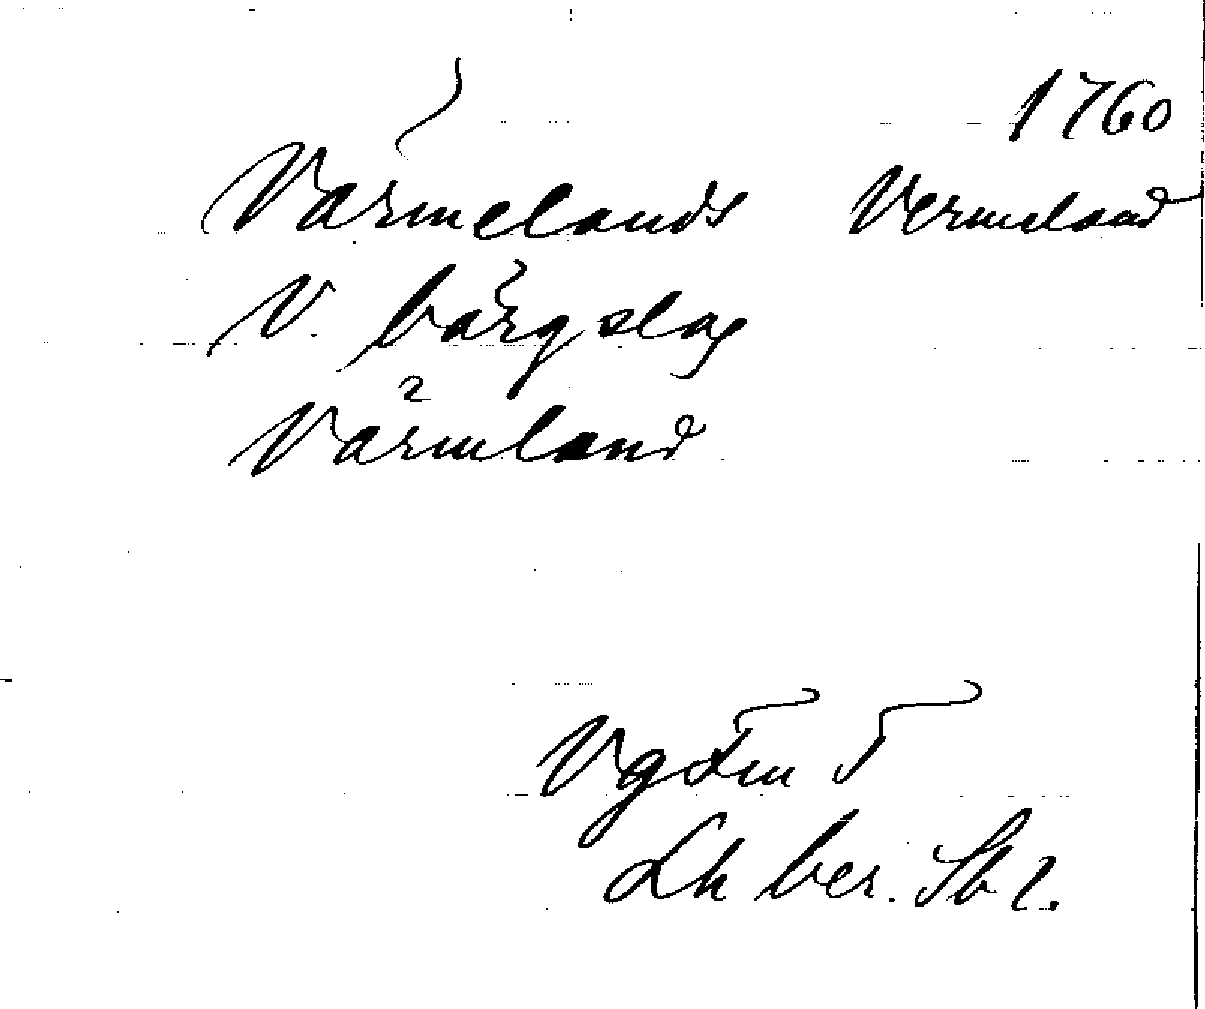 1760
Värmelands Vermeland
V. bärgslag
Värmland
Lk ber. Sb 2.